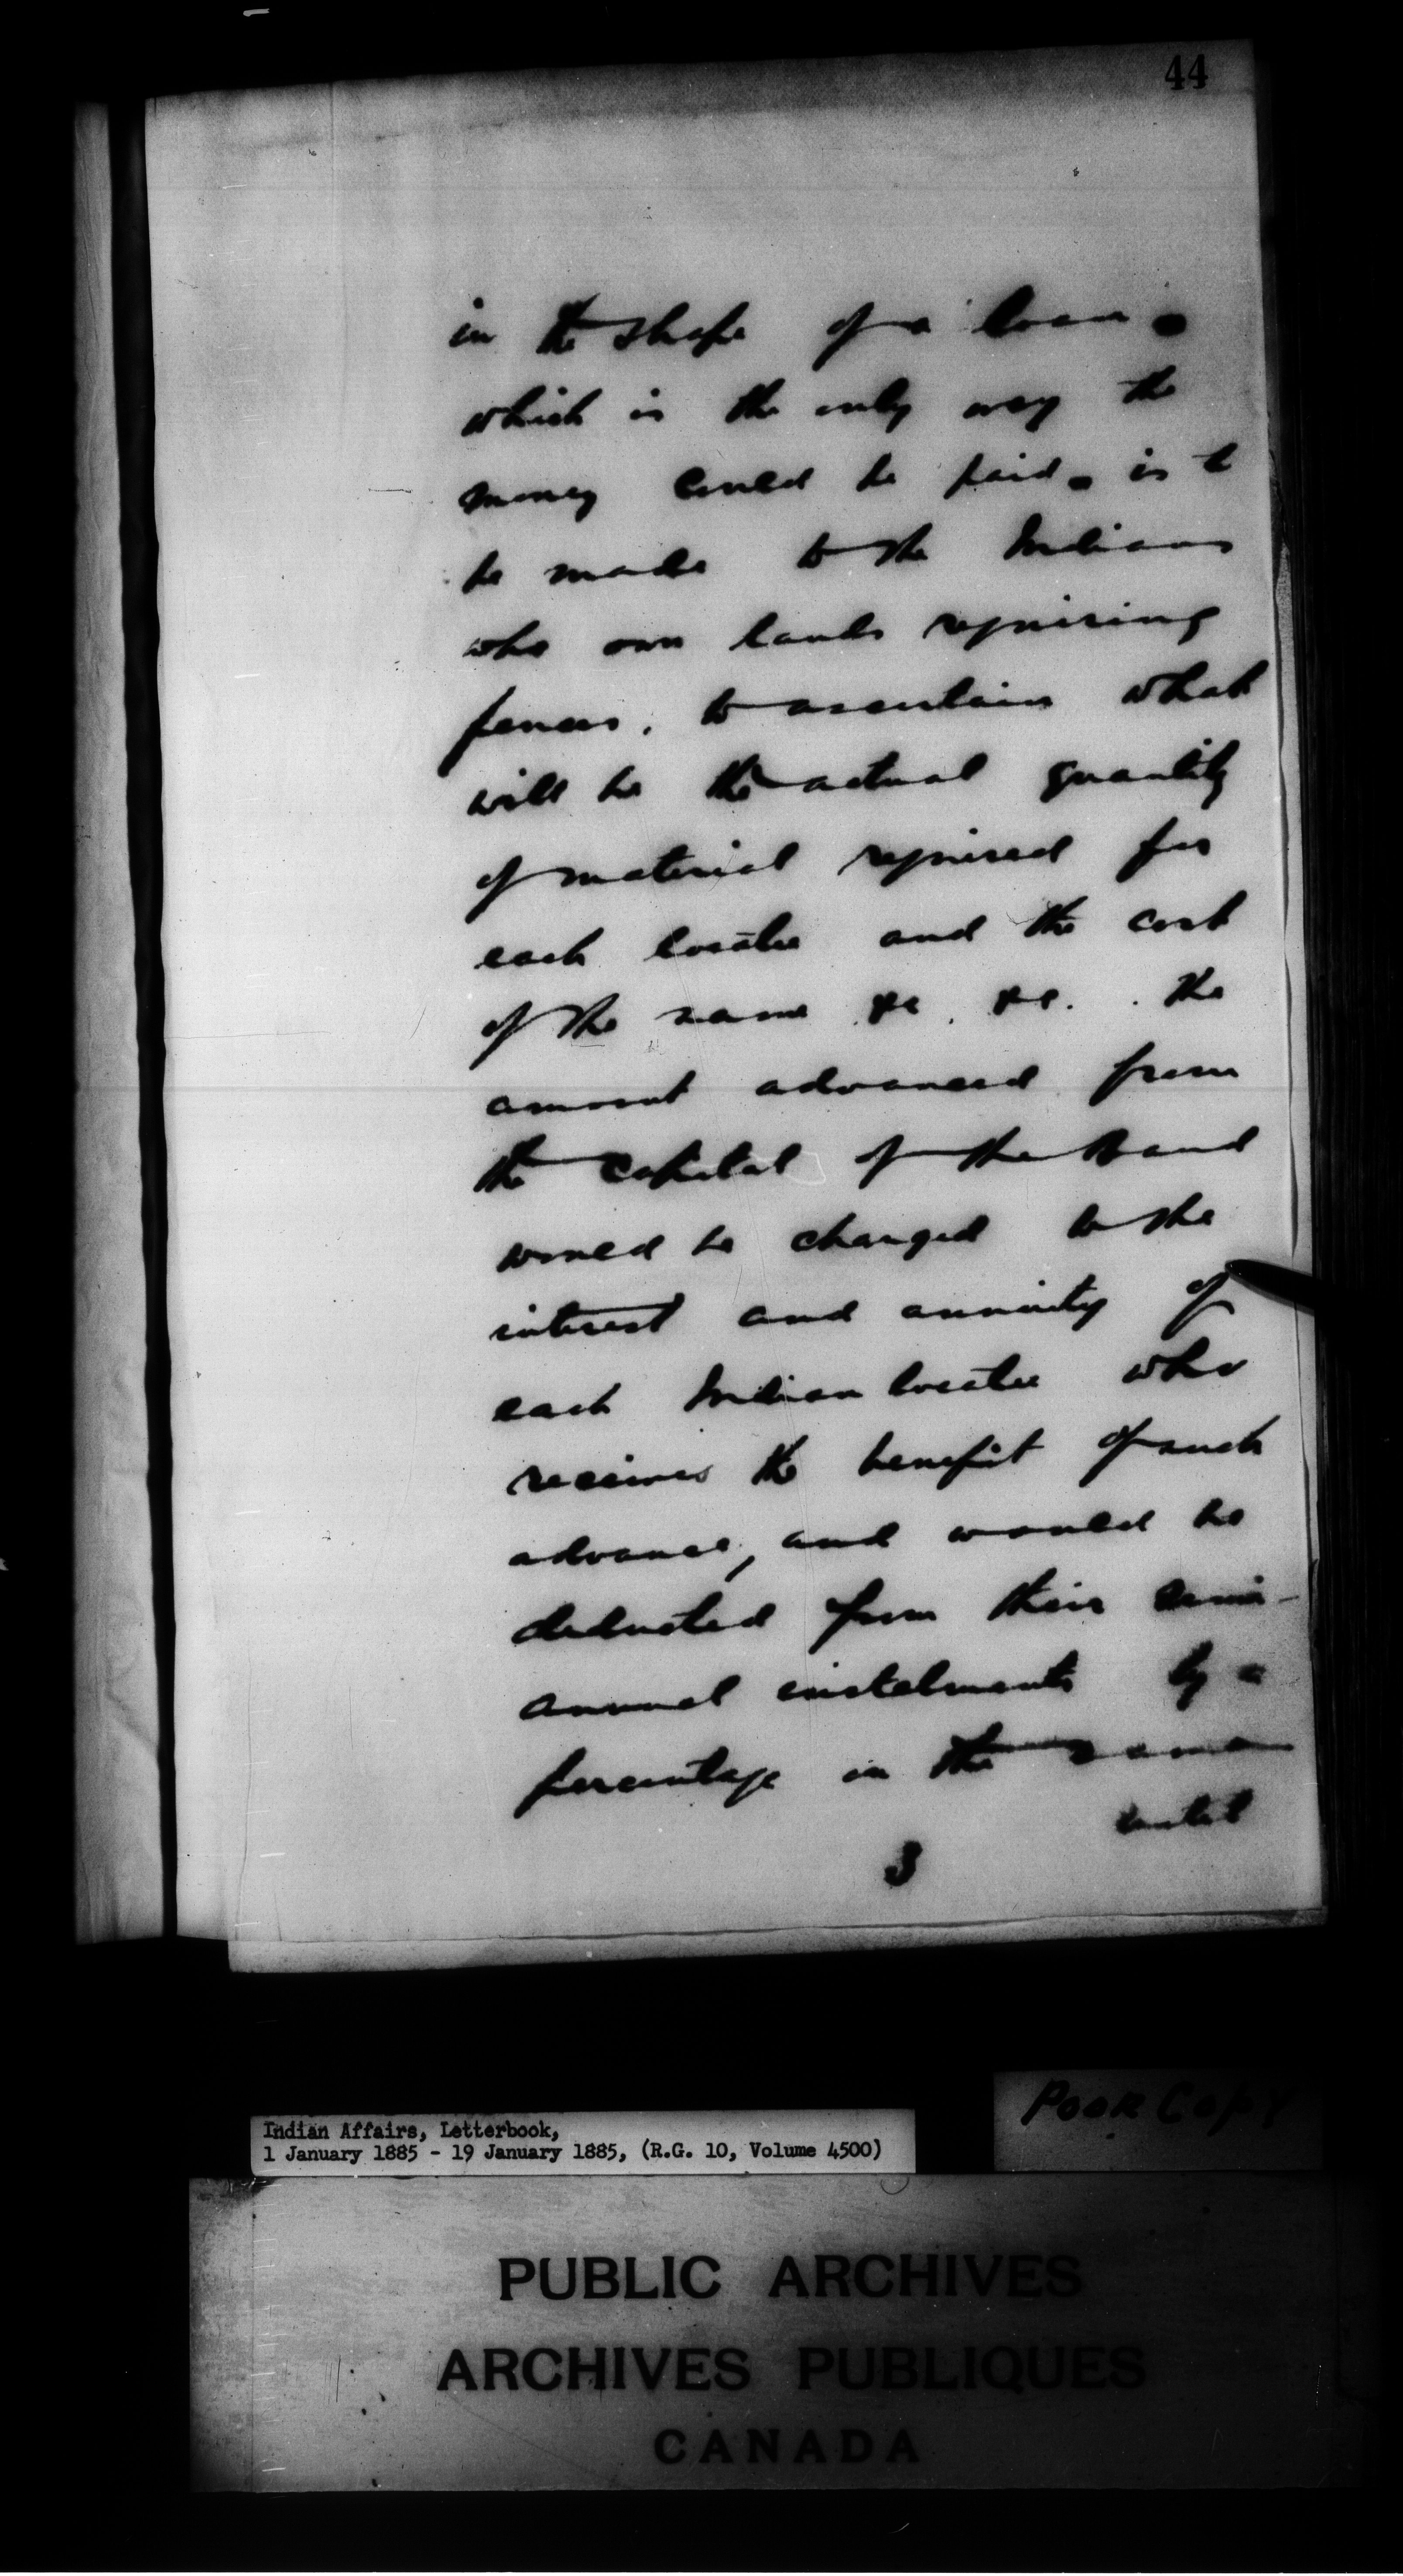 44
in the shape of a loan -
which is the only way the
money could be paid - is to
be made to the Indians
who own lands requiring
fences, to ascertain what
will be the actual quantity
of material required for
each locatee and the cost
of the same &c. &c. . the
amount advanced from
the capital of the Band
would be charged to the
interest and annuity of
each Indian locatee who
receives the benefit of such
advance, and would be
deducted from their semi-
annual instalments by a
percentage on the same
until
3
POOR COPY
Indian Affairs, Letterbook,
1 January 1885 - 19 January 1885, (R.G. 10, Volume 4500)
PUBLIC ARCHIVES
ARCHIVES PUBLIQUES
CANADA